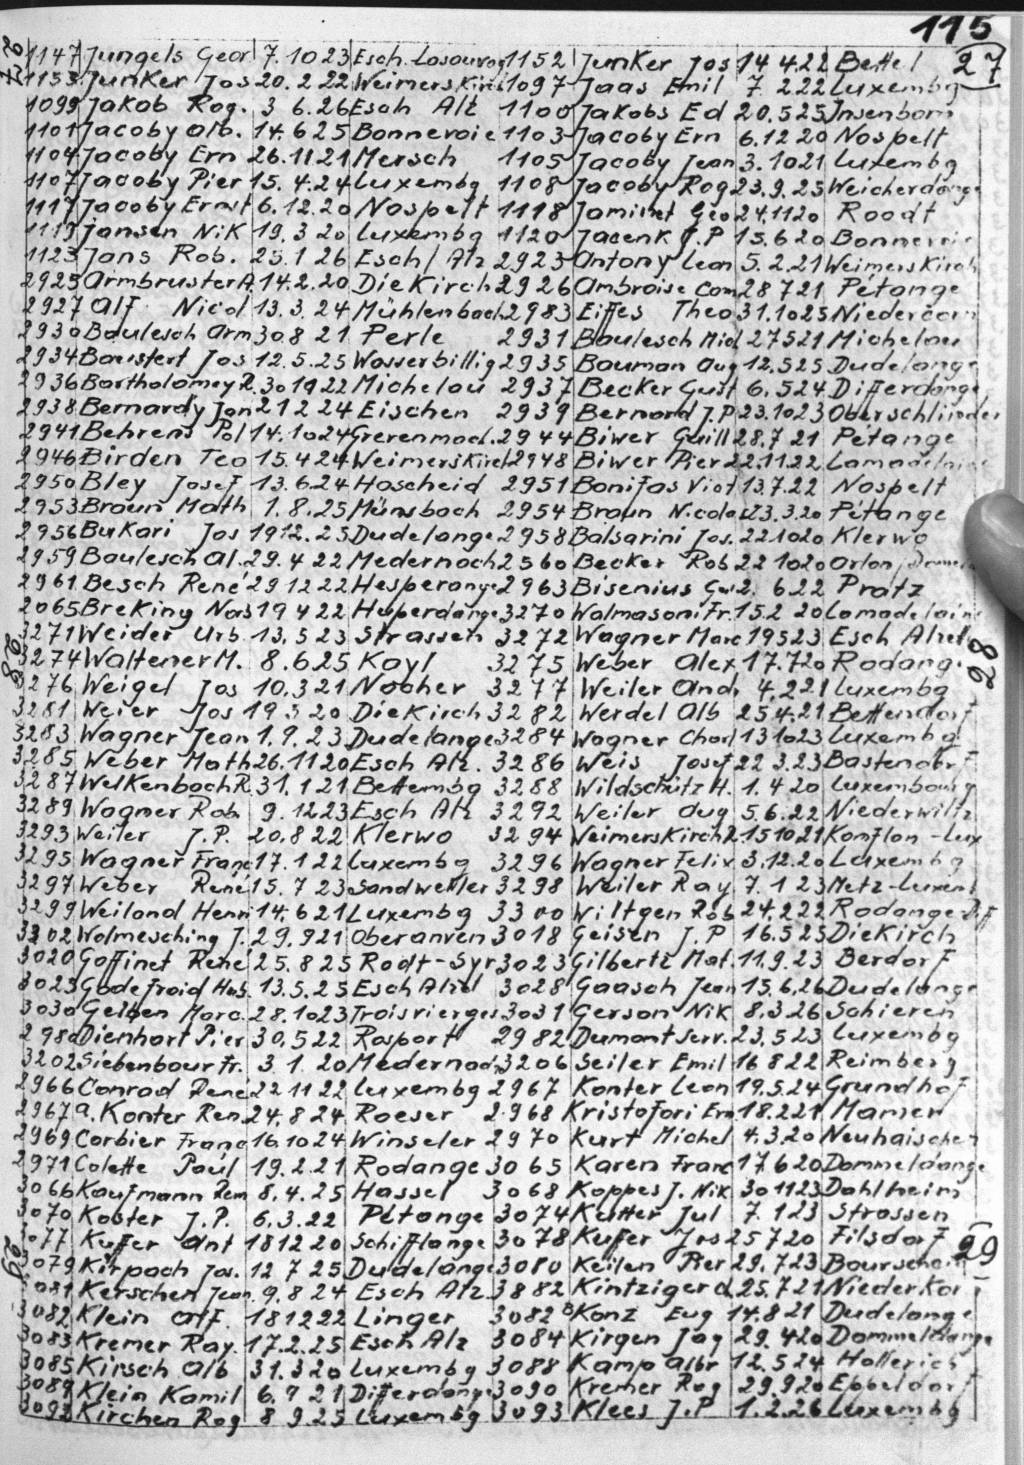 115
1147 Jungels Geor 7.10 23 Esch. 1152 Junker Jos 14 4.22 Bettel 27
1153 Junker Jos 20.2.22 Weimerskirch 1097 Jaas Emil 7. 2 22 Luxembg
1099 Jakob Rog. 3 6.26 Esch Alz 1100 Jakobs Ed 20.5 25 Insenborn
1101 Jacoby Alb. 14.6 25 Bonnevoie 1103 Jacoby Ern 6.12 20 Nospelt
1104 Jacoby Ern 26.11 21 Mersch 1105 Jacoby Jean 3.10 21 Luxembg
1107 Jacoby Pier 15.4.24 Luxembg 1108 Jacoby Rog 23.9.25 Weicherdange
1117 Jacoby Ernst 6.12.20 Nospelt 1118 Geo 24.11 20 Roodt
1119 Jansen Nik 19.3 20 Luxembg 1120 Jacenk J.P 15.6 20 Bonnevoie
1123 Jans Rob. 25.1 26 Esch/Alz 2923 Antony Leon 5.2.21 Weimerskirch
2925 Armbruster A. 14.2.20 Diekirch 2926 Ambroise Com 28 7 21 Petange
2927 Alf Nicol 13.3.24 Mühlenbach 2983 Eiffes Theo 31.10 25 Niedercorn
2930 Baulesch Arm 30 8 21 Perle 2931 Baulesch Mich 27 5 21 Michelau
2934 Baustert Jos 12.5.25 Wasserbillig 2935 Bauman Aug 12.5 25 Dudelange
2936 Bartholomey R. 30 Michelau 2937 Becker Gust 6.5 24 Differdange
2938 Bernardy Jon 21 2 24 Eischen 2939 Bernard J.P. 23.10 23 Oberschlinder
2941 Behrens Pol 14.10 24 Grevenmach. 2944 Biwer Guill 28.7 21 Petange
2946 Birden Teo 15.4 24 Weimerskirch 2948 Biwer Pier 22.11.22 Lamadelaine
2950 Bley Josef 13.6.24 Hoscheid 2951 Bonifas Vict 13.7.22 Nospelt
2953 Braun Math 1.8.25 Münsbach 2954 Braun Nicolas 23.3.20 Petange
2956 Bukari Jos 19 12.25 Dudelange 2958 Balsarini Jos. 22 10 20 Klerwo
2959 Baulesch Al. 29.4 22 Medernach 2560 Becker Rob 22 10 20 Arlon
2961 Besch René 29 12 22 Hesperange 2963 Bisenius 2. 6 22 Pratz
2065 Breking Nas 19 4 22 Huperdange 3270 Walmasoni Fr. 15.2 20 Lamadelaine
28 3271 Weider Urb. 13.5 23 Strassen 3272 Wagner Marc 19 5 23 Esch Alzet 28
3274 Waltener M. 8.6 25 Kayl 3275 Weber Alex 17.7 20 Rodang.
3276 Weigel Jos 10.3 21 Nocher 3277 Weiler And. 4.2 21 Luxembg
3281 Weier Jos 19 3 20 Diekirch 3282 Werdel Alb 25.4.21 Bettendorf
3283 Wagner Jean 1.9.23 Dudelange 3284 Wagner Charl 13 10 23 Luxembg
3285 Weber Math 26.11 20 Esch Alz. 3286 Weis Josef 22 3.23 Bastendorf
3287 Welkenbach R. 31.1 21 Bettembg 3288 Wildschütz H. 1.4 20 Luxembourg
3289 Wagner Rob. 9.12 23 Esch Alz 3292 Weiler Aug 5.6.22 Niederwiltz
3293 Weiler J.P. 20.8 22 Klerwo 3294 Weimerskirch 2. 15 10 21 Konflon-Lux
3295 Wagner Franc 17.1 22 Luxembg 3296 Wagner Felix 3.12.20 Luxembg
3297 Weber René 15.7 23 Sandweiler 3298 Weiler Ray 7.1 23 Metz-Luxemb
3299 Weiland Henri 14.6 21 Luxembg 3300 Wiltgen Rob 24.2 22 Rodange Diff
3302 Wolmesching J. 29.9 21 Oberanven 3018 Geisen J.P 16.5 25 Diekirch
3020 Goffinet René 25.8 25 Rodt-Syr 3023 Gilbertz Mat. 11.9.23 Berdorf
3023 Godefroid Hub. 13.5.25 Esch Alzet 3028 Gaasch Jean 15.6.26 Dudelange
3030 Gelben Marc. 28.10 23 Troisvierges 3031 Gerson Nik 8.3.26 Schieren
2980 Dienhart Pier 30.5 22 Rosport 2982 Dumont Serv. 23.5 23 Luxembg
3202 Siebenbour Fr. 3.1.20 Medernach 3206 Seiler Emil 16 8 22 Reimberg
2966 Conrad René 22 11 22 Luxembg 2967 Konter Leon 19.5.24 Grundhof
2967 a. Konter Ren. 24.8 24 Roeser 2968 Kristofori Ern 18.2 21 Mamer
2969 Corbier Franc 16.10 24 Winseler 2970 Kurt Michel 4.3.20 Neuhaischen
2971 Colette Paul 19.2.21 Rodange 3065 Karen Franc 17 6 20 Dommeldange
3066 Kaufmann Rem 8.4.25 Hassel 3068 Koppes J. Nik 30 11 23 Dahlheim
3070 Koster J.P. 6.3.22 Petange 3074 Kutter Jul 7.1 23 Strassen
3077 Kuffer Ant 18 12 20 Schifflange 3078 Kuffer Jos 25 7 20 Filsdorf 29
29 3079 Kirpach Jos. 12 7 25 Dudelange 3080 Keilen Pier 29.7 23 Bourscheid
3081 Kerschen Jean 9.8 24 Esch Alz 3882 Kintziger A. 25.7 21 Niederkorn
3082 Klein Alf. 18 12 22 Linger 3082 B Konz Eug 14.8 21 Dudelange
3083 Kremer Ray. 17.2.25 Esch Alz 3084 Kirgen Jag 29.4 20 Dommeldange
3085 Kirsch Alb 31.3 20 Luxembg 3088 Kamp Albr 12.5 24 Hollerich
3089 Klein Kamil 6.9 21 Differdange 3090 Kremer Rog 29.9 20 Eppeldorf
3092 Kirchen Rog 8 9.25 Luxembg 3093 Klees J.P 1.2.26 Luxembg